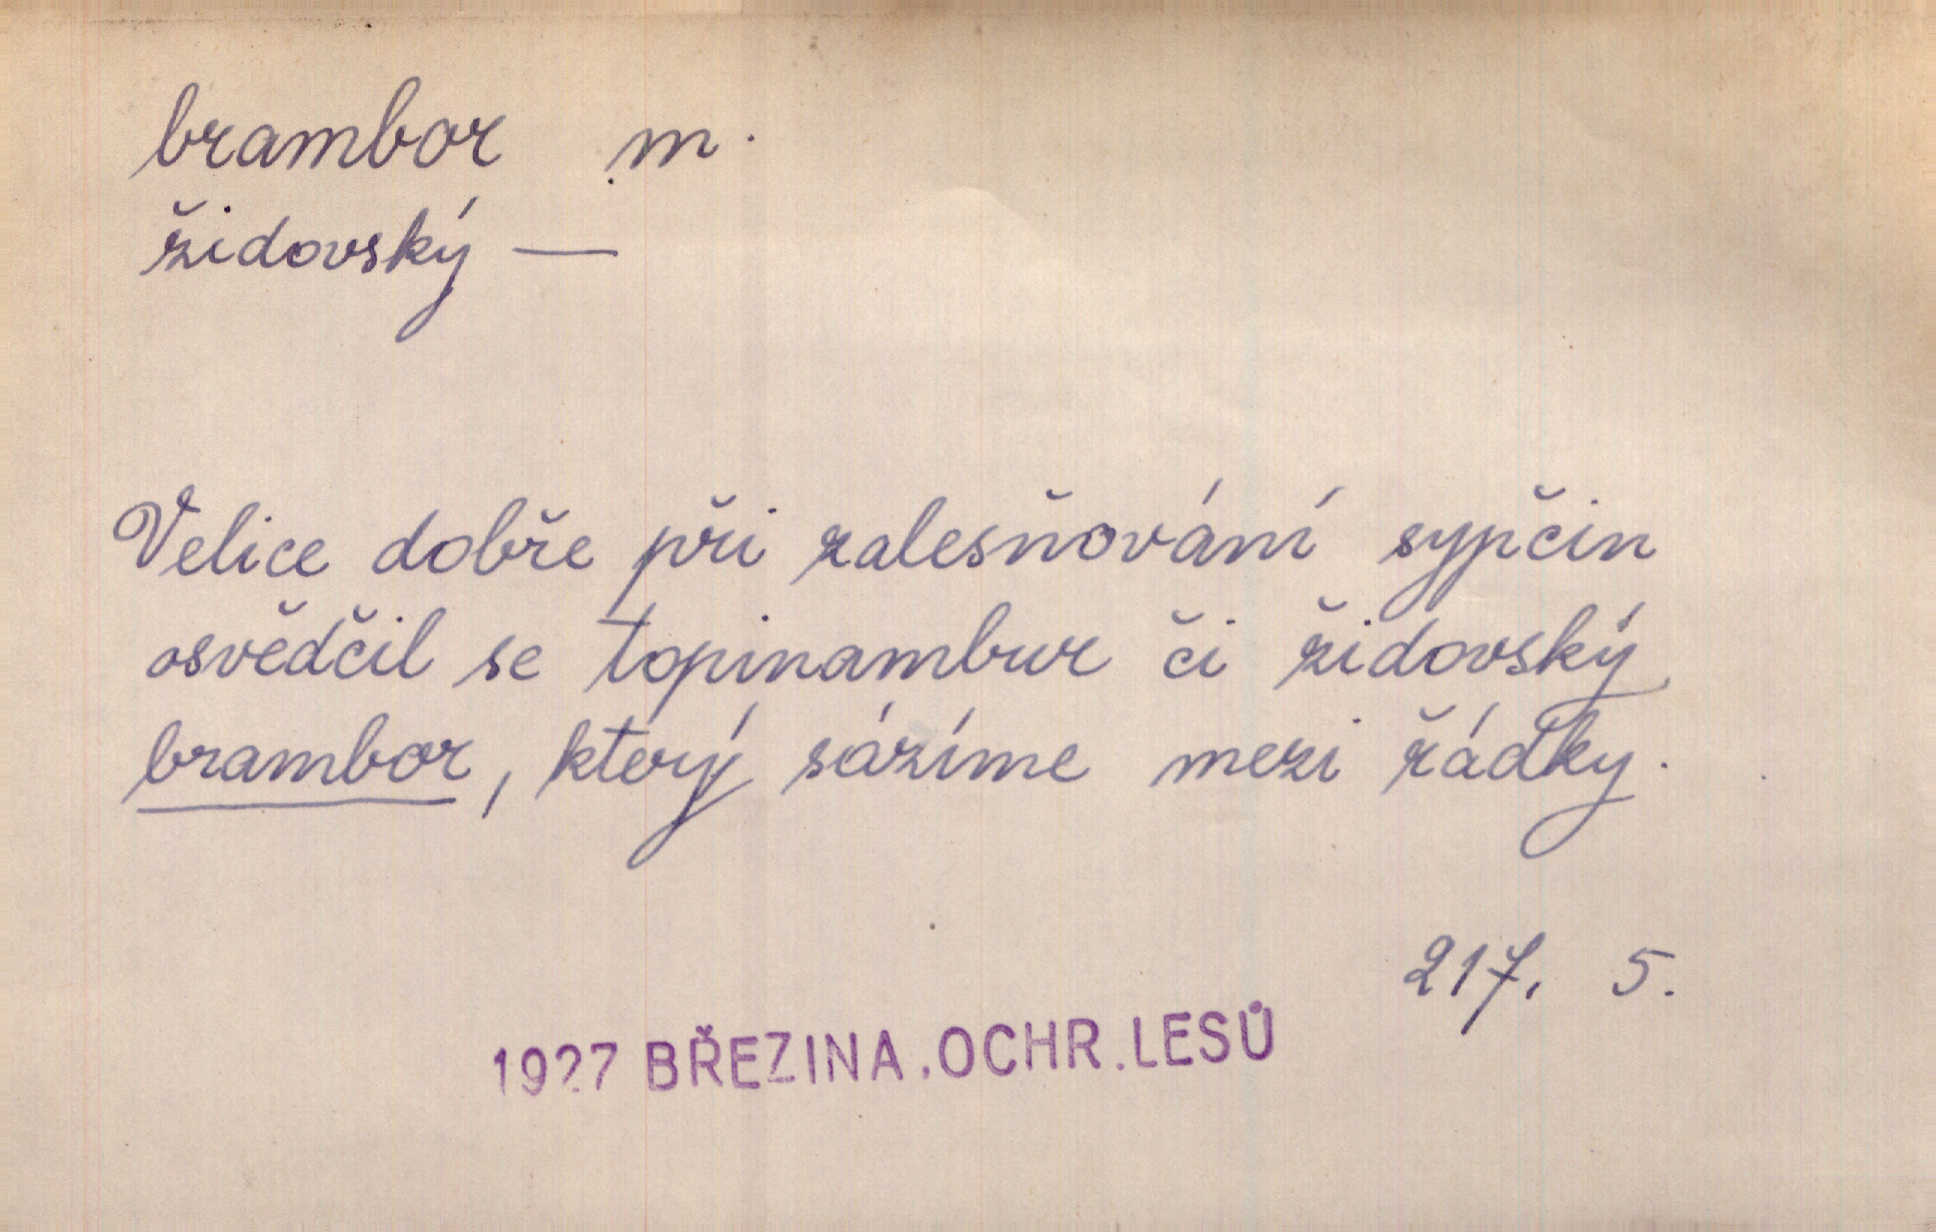 brambor m.
židovský —
Velice dobře při zalesňování sypčin
osvědčil se topinambur či židovský
brambor, který sázíme mezi řádky.
217. 5.
1927 BŘEZINA.OCHR.LESŮ